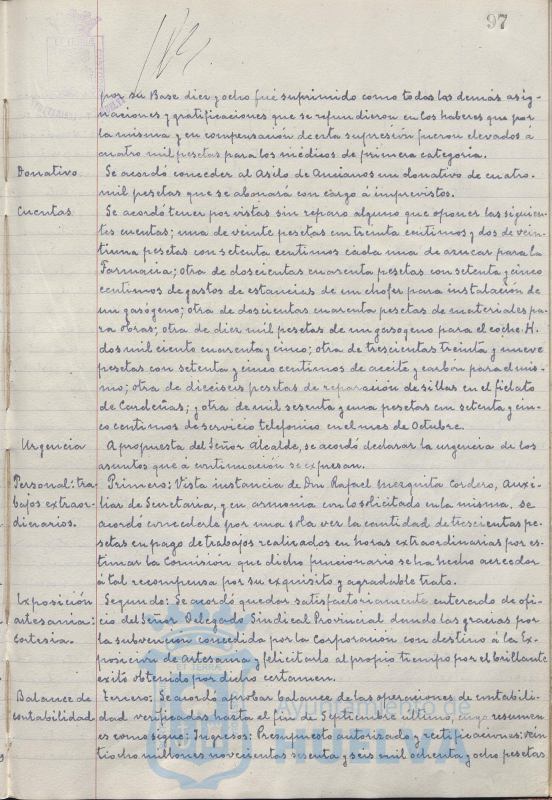 97
por su Base diez y ocho fué suprimido como todas las demás asig-
naciones y gratificaciones que se refundieron en los haberes que por
la misma y en compensación de esta supresión fueron elevados á
cuatro mil pesetas para los médicos de primera categoria.
Donativo
Se acordó conceder al Asilo de Ancianos un donativo de cuatro-
mil pesetas que se abonará con cargo á imprevistos.
Cuentas
Se acordó tener por vistas sin reparo alguno que oponer las siguien-
tes cuentas; una de veinte pesetas con treinta centimos y dos de vein-
tiuna pesetas con setenta centimos cada una de azucar para la
Farmacia; otra de doscientas cuarenta pesetas con setenta y cinco
centimos de gastos de estancias de un chofer para instalación de
un gasógeno; otra de doscientas cuarenta pesetas de materiales pa-
ra obras; otra de diez mil pesetas de un gasogeno para el coche H.
dos mil ciento cuarenta y cinco; otra de trescientas treinta y nueve
pesetas con setenta y cinco centimos de aceite y carbón para el mis-
mo; otra de dieciseis pesetas de reparación de sillas en el fielato
de Cardeñas; y otra de mil sesenta y una pesetas con setenta y cin-
co centimos de servicio telefonico en el mes de Octubre.
Urgencia
A propuesta del Señor Alcalde, se acordó declarar la urgencia de los
asuntos que á continuación se expresan.
Personal: tra-
bajos extraor-
dinarios.
Primero: Vista instancia de Don Rafael Mezquita Cordero, Auxi-
liar de Secretaria, y en armonia con lo solicitado en la misma, se
acordó concederle por una sola vez la cantidad de trescientas pe-
setas en pago de trabajos realizados en horas extraordinarias por es-
timar la Comisión que dicho funcionario se ha hecho acreedor
á tal recompensa por su exquisito y agradable trato.
Exposición
artesania:
cortesia.
Segundo: Se acordó quedar satisfactoriamente enterado de ofi-
cio del Señor Delegado Sindical Provincial dando las gracias por
la subvención concedida por la Corporación con destino á la Ex-
posición de Artesania y felicitarlo al propio tiempo por el brillante
exito obtenido por dicho certamen.
Balance de
contabilidad
Tercero: Se acordó aprobar balance de las operaciones de contabili-
dad verificadas hasta el fin de Septiembre último, cuyo resumen
es como sigue: Ingresos: Presupuesto autorizado y rectificaciones: vein-
tiocho millones novecientos sesenta y seis mil ochenta y ocho pesetas
Ayuntamiento de
HUELVA